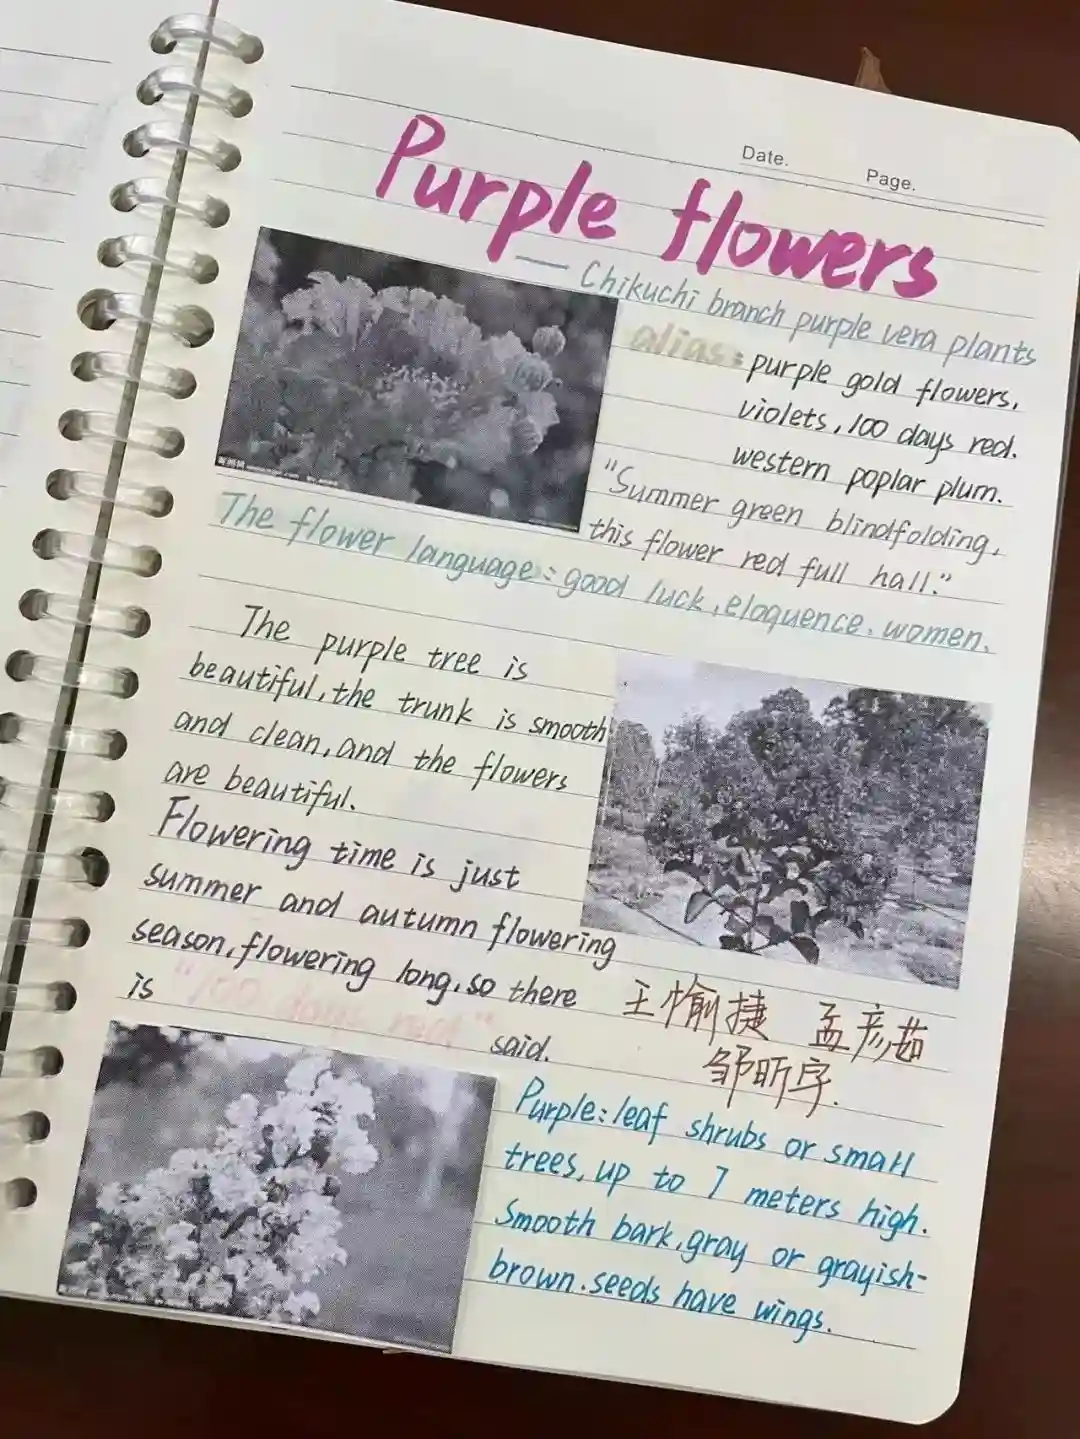 Date.
Page.
Purple flowers
— Chikuchi branch purple vera plants
alias: purple gold flowers,
violets, 100 days red.
western poplar plum.
"Summer green blindfolding,
this flower red full hall."
The flower language: good luck, eloquence, women.
The purple tree is
beautiful, the trunk is smooth
and clean, and the flowers
are beautiful.
Flowering time is just
summer and autumn flowering
season, flowering long, so there
is "100 days red"
said.
王愉捷 孟彦茹
邹昕字.
Purple: leaf shrubs or small
trees, up to 7 meters high.
Smooth bark, gray or grayish-
brown. seeds have wings.